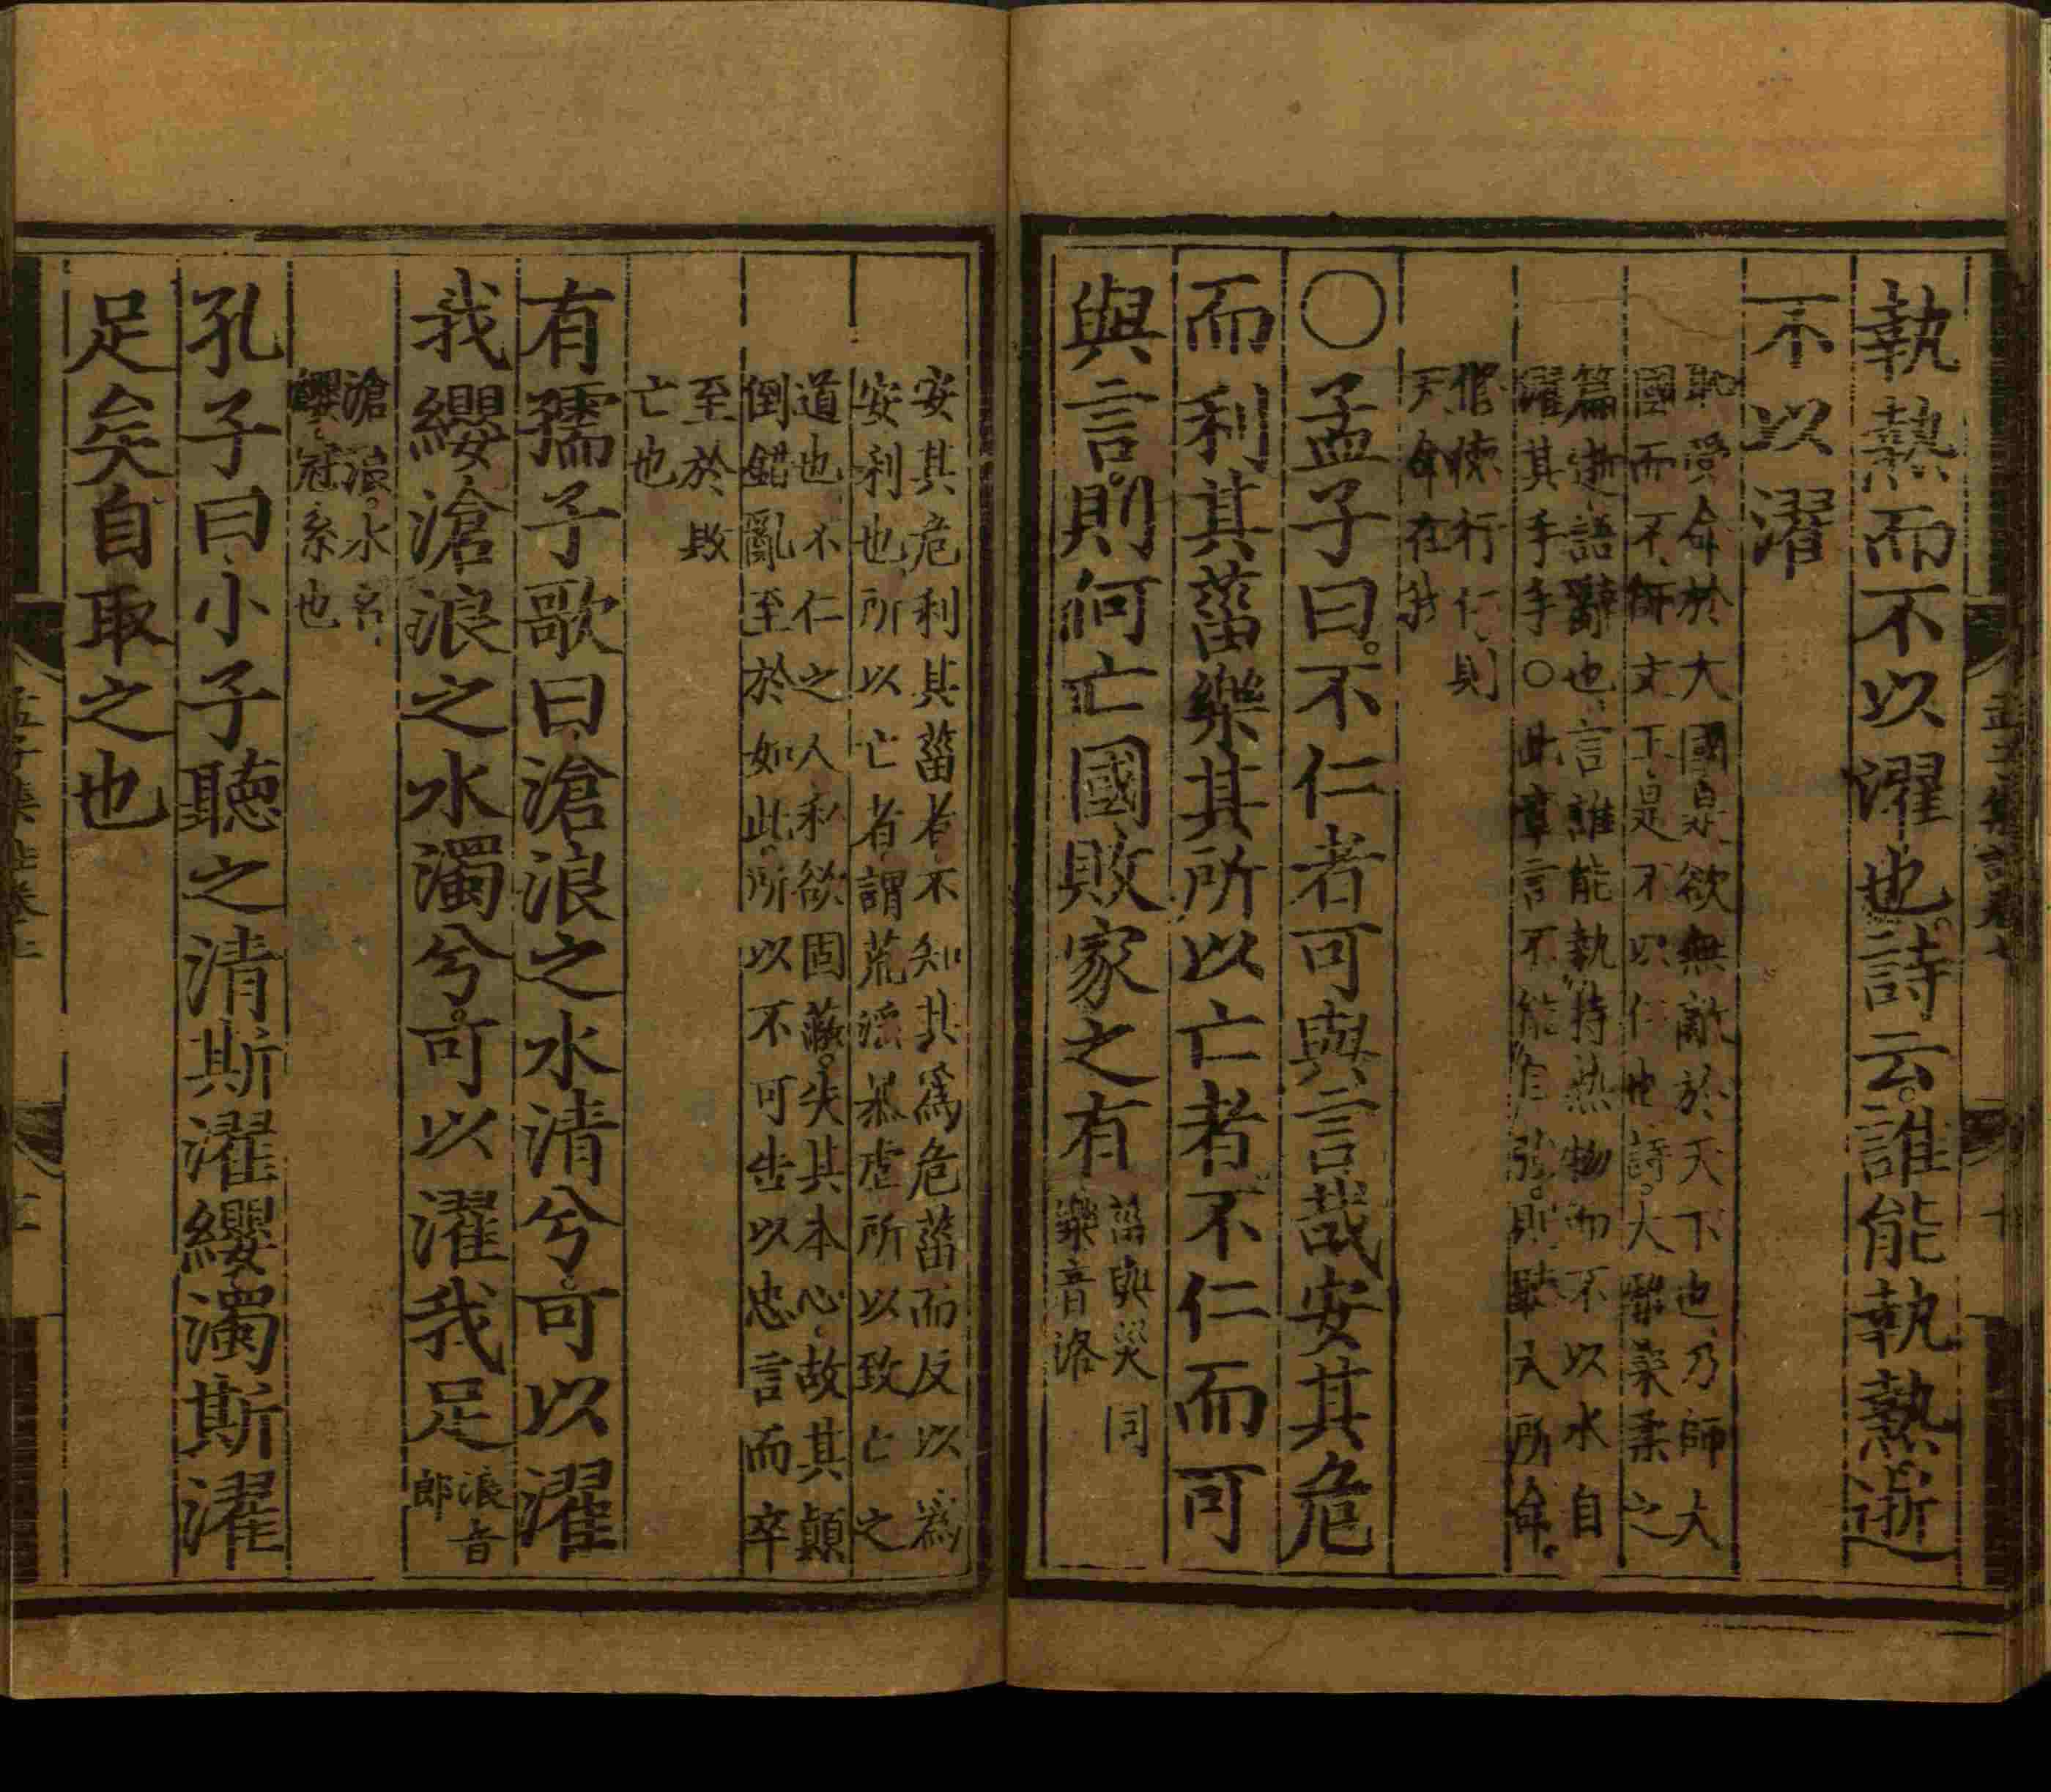 執熱而不以濯也詩云誰能執熱逝
不以濯
恥受命於大國是欲無敵於天下也乃師大
國而不師文王是不以仁也詩大雅桑柔之
篇逝語辭也言誰能執持熱物而不以水自
濯其手乎○此章言不能自強則聽天所命
脩德行仁則
天命在我
○孟子曰不仁者可與言哉安其危
而利其菑樂其所以亡者不仁而可
與言則何亡國敗家之有
菑與災同
樂音洛
安其危利其菑者不知其爲危菑而反以爲
安利也所以亡者謂荒淫暴虐所以致亡之
道也不仁之人私欲固蔽失其本心故其顛
倒錯亂至於如此所以不可告以忠言而卒
至於敗
亡也
有孺子歌曰滄浪之水清兮可以濯
我纓滄浪之水濁兮可以濯我足
浪音
郎
滄浪水名
纓冠系也
孔子曰小子聽之清斯濯纓濁斯濯
足矣自取之也
孟子集註卷七
十
孟子集註卷七
十一